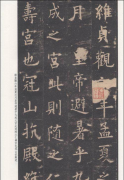 維貞觀六年孟夏之
月皇帝避暑乎九
成之宮此則隨之仁
壽宮也冠山抗殿絕